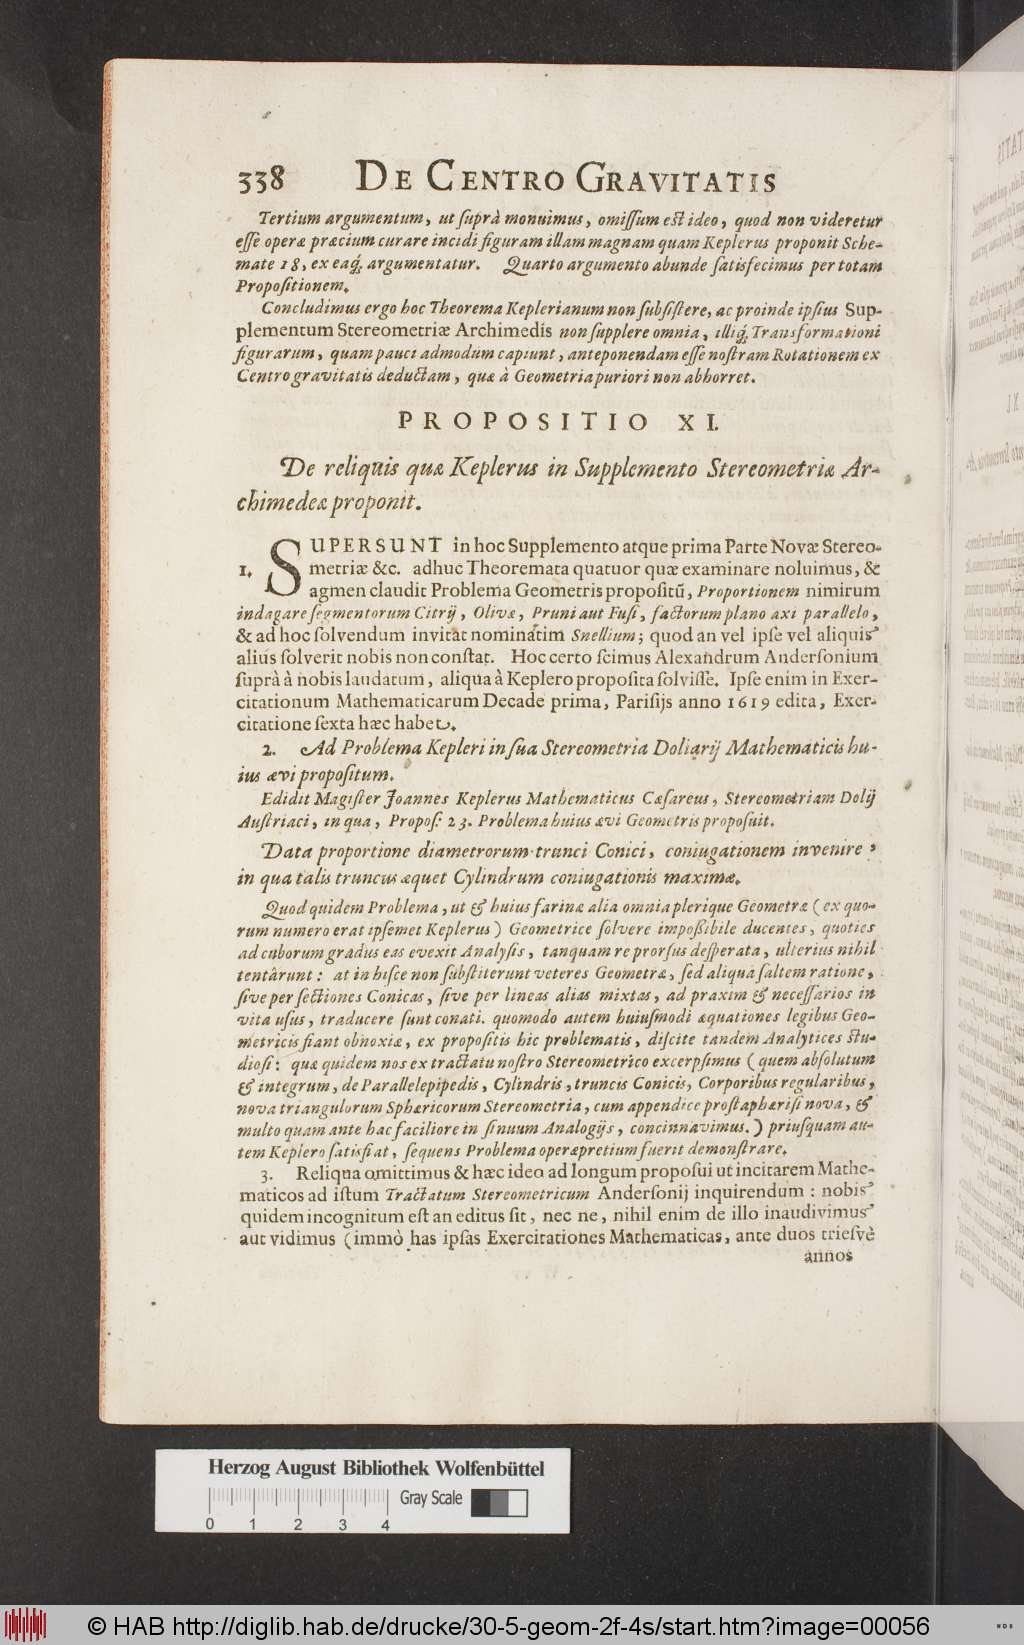 338 DE CENTRO GRAVITATIS
Tertium argumentum, ut ſuprà monuimus, omiſſum eſt ideo, quod non videretur
eſſe operæ præcium curare incidi figuram illam magnam quam Keplerus proponit Sche-
mate 18, ex eaq́; argumentatur. Quarto argumento abunde ſatisfecimus per totam
Propoſitionem.
Concludimus ergo hoc Theorema Keplerianum non ſubſiſtere, ac proinde ipſius Sup-
plementum Stereometriæ Archimedis non ſupplere omnia, illiq́; Transformationi
figurarum, quam pauci admodum capiunt, anteponendam eſſe noſtram Rotationem ex
Centro gravitatis deductam, quæ à Geometria puriori non abhorret.
PROPOSITIO XI.
De reliquis quæ Keplerus in Supplemento Stereometriæ Ar-
chimedeæ proponit.
SUPERSUNT in hoc Supplemento atque prima Parte Novæ Stereo-
1. metriæ &c. adhuc Theoremata quatuor quæ examinare noluimus, &
agmen claudit Problema Geometris propoſitũ, Proportionem nimirum
indagare ſegmentorum Citrij, Olivæ, Pruni aut Fuſi, factorum plano axi parallelo,
& ad hoc ſolvendum invitat nominatim Snellium; quod an vel ipſe vel aliquis
alius ſolverit nobis non conſtat. Hoc certo ſcimus Alexandrum Anderſonium
ſuprà à nobis laudatum, aliqua à Keplero propoſita ſolviſſe. Ipſe enim in Exer-
citationum Mathematicarum Decade prima, Pariſijs anno 1619 edita, Exer-
citatione ſexta hæc habet.
2. Ad Problema Kepleri in ſua Stereometria Doliarij Mathematicis hu-
ius ævi propoſitum.
Edidit Magiſter Joannes Keplerus Mathematicus Cæſareus, Stereometriam Dolij
Auſtriaci, in qua, Propoſ: 23. Problema huius ævi Geometris propoſuit.
Data proportione diametrorum trunci Conici, coniugationem invenire,
in qua talis truncus æquet Cylindrum coniugationis maximæ.
Quod quidem Problema, ut & huius farinæ alia omnia plerique Geometræ (ex quo-
rum numero erat ipſemet Keplerus) Geometrice ſolvere impoßibile ducentes, quoties
ad cuborum gradus eas evexit Analyſis, tanquam re prorſus deſperata, ulterius nihil
tentârunt: at in hiſce non ſubſtiterunt veteres Geometræ, ſed aliqua ſaltem ratione,
ſive per ſectiones Conicas, ſive per lineas alias mixtas, ad praxim & neceſſarios in
vita uſus, traducere ſunt conati. quomodo autem huiuſmodi æquationes legibus Geo-
metricis fiant obnoxiæ, ex propoſitis hic problematis, diſcite tandem Analytices ſtu-
dioſi: quæ quidem nos ex tractatu noſtro Stereometrico excerpſimus (quem abſolutum
& integrum, de Parallelepipedis, Cylindris, truncis Conicis, Corporibus regularibus,
nova triangulorum Sphæricorum Stereometria, cum appendice proſtaphæriſi nova, &
multo quam ante hac faciliore in ſinuum Analogijs, concinnavimus.) priuſquam au-
tem Keplero ſatisfiat, ſequens Problema operæpretium fuerit demonſtrare.
3. Reliqua omittimus & hæc ideo ad longum propoſui ut incitarem Mathe-
maticos ad iſtum Tractatum Stereometricum Anderſonij inquirendum: nobis
quidem incognitum eſt an editus ſit, nec ne, nihil enim de illo inaudivimus
aut vidimus (immò has ipſas Exercitationes Mathematicas, ante duos trieſvè
annos
Herzog August Bibliothek Wolfenbüttel
Gray Scale
0 1 2 3 4
© HAB http://diglib.hab.de/drucke/30-5-geom-2f-4s/start.htm?image=00056